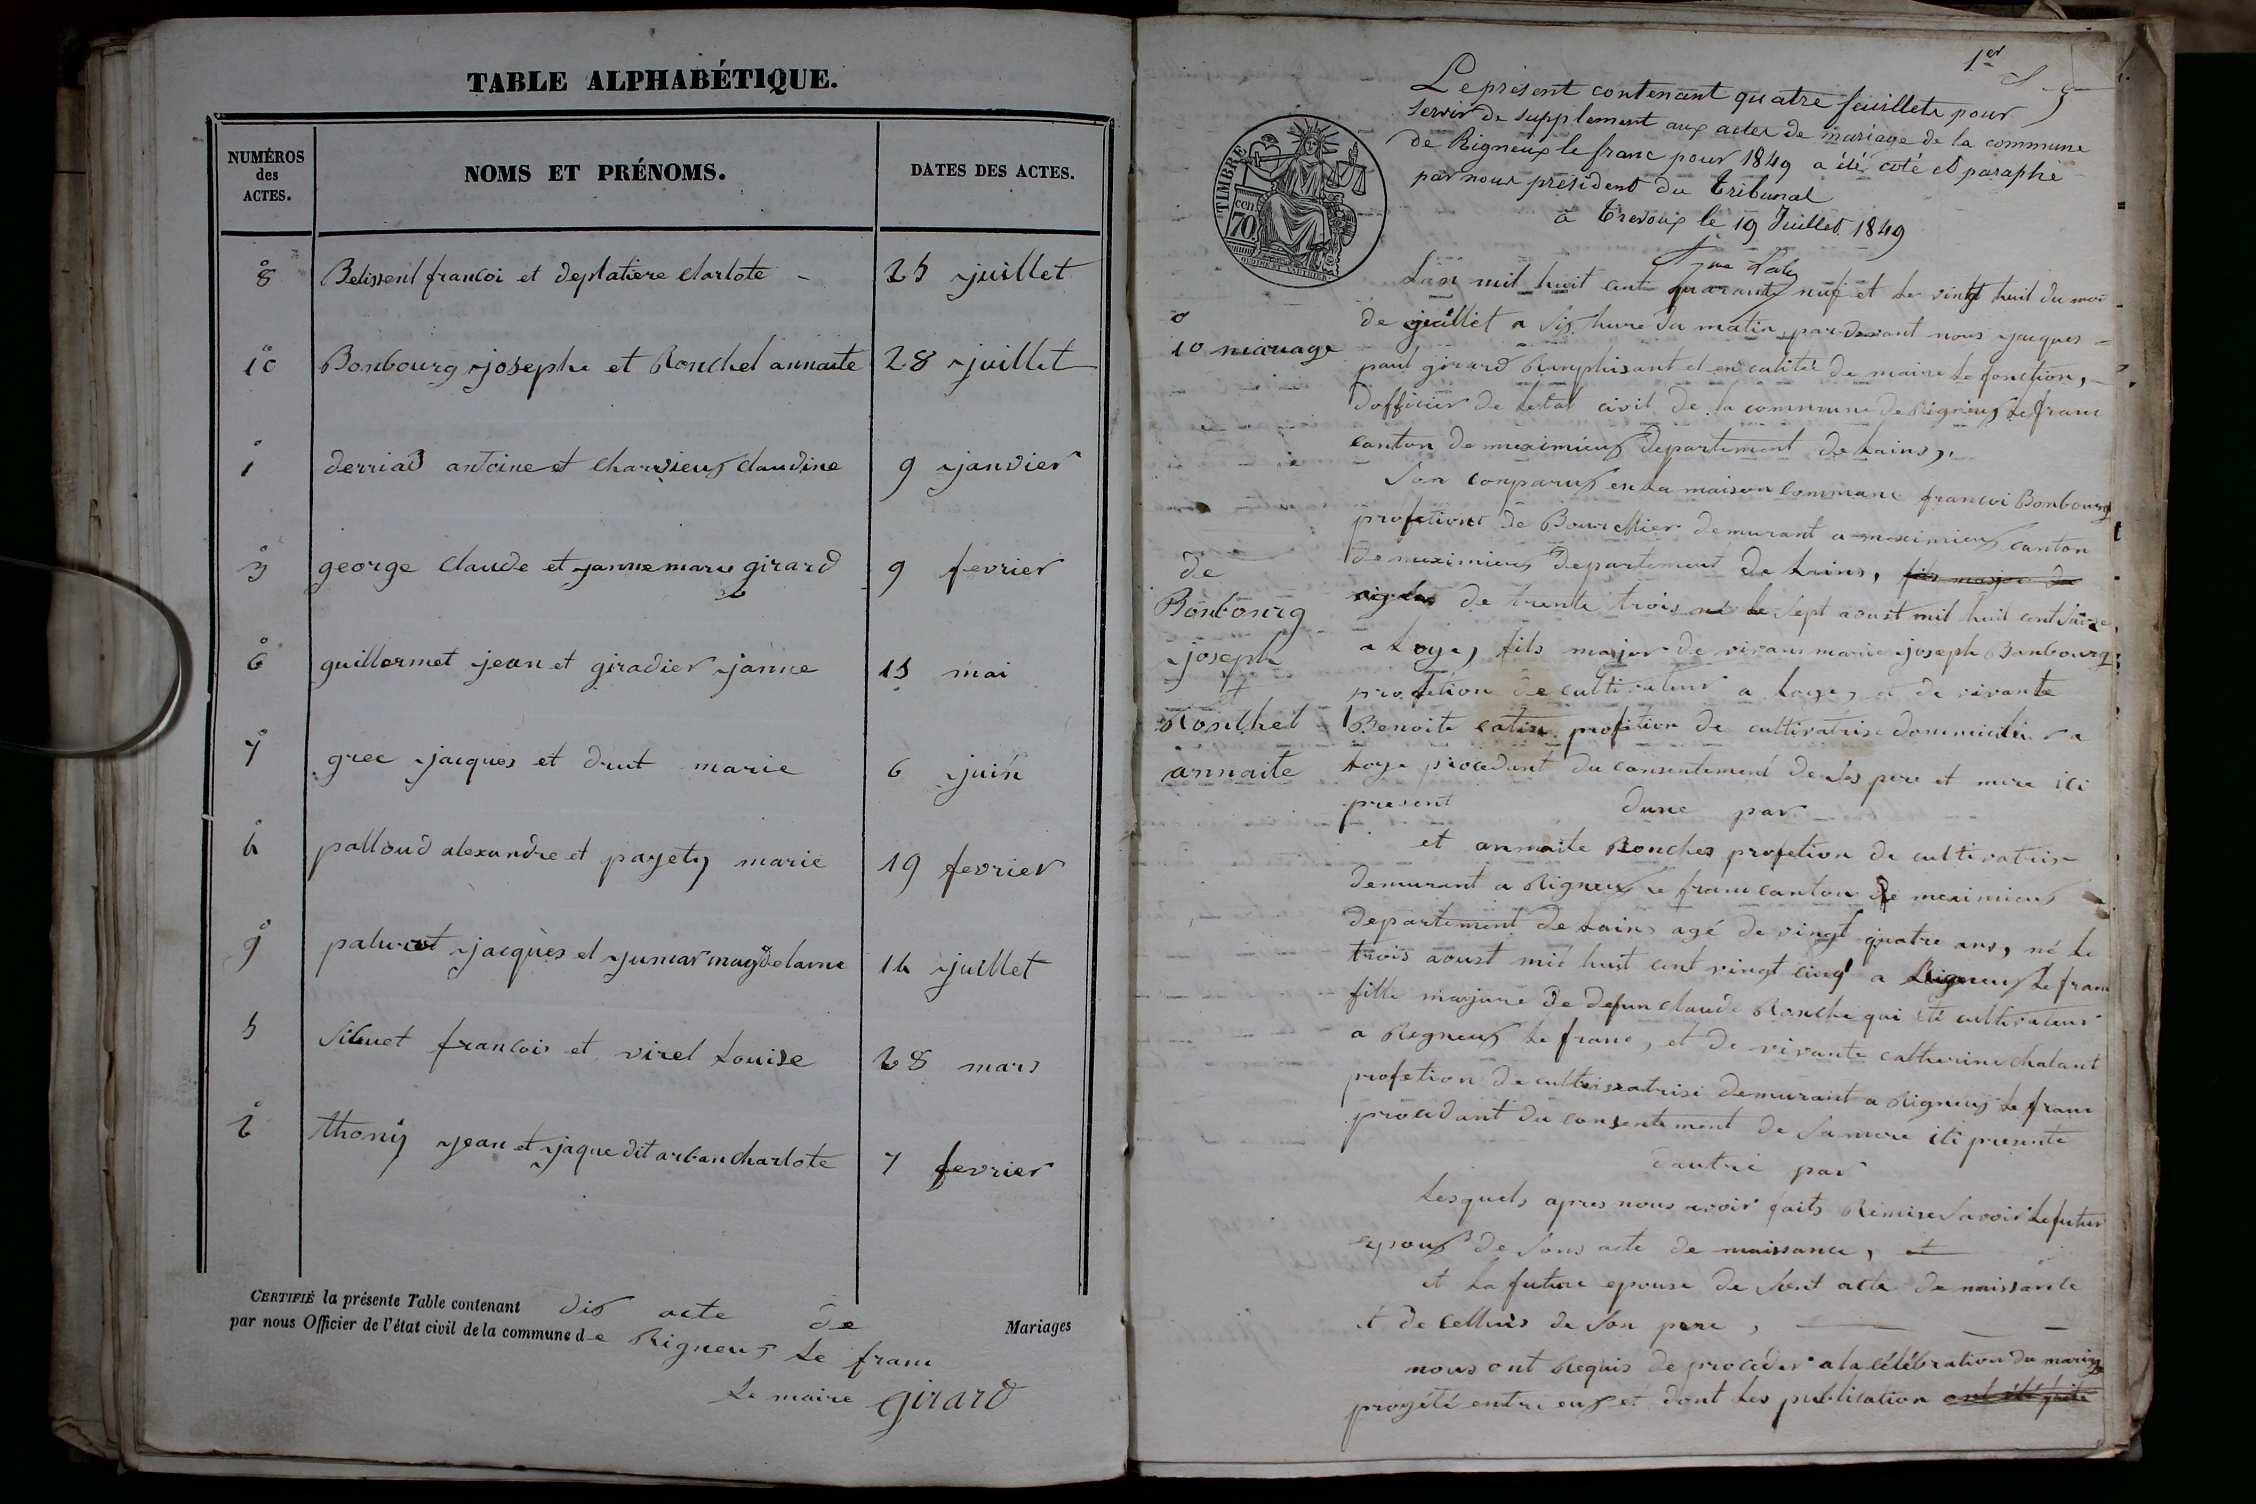 TABLE ALPHABÉTIQUE.
NUMÉROS des ACTES.
NOMS ET PRÉNOMS.
DATES DES ACTES.
8 Belissent francoi et deplatiere clarlote 25 juillet
10 Bonbourg josephe et Ronchel annaite 28 juillet
1 derriad antoine et charvieux claudine 9 janvier
3 george claude et janne marie girard 9 fevrier
6 guillermet jean et giradier janne 15 mai
7 grec jacques et drut marie 6 juin
4 palloud alexandre et payety marie 19 fevrier
9 jacques et magdelaine 14 juillet
5 francois et virel Louise 28 mars
2 thoniy jean et jaque dit arban charlote 7 fevrier
CERTIFIÉ la présente Table contenant dix acte de Mariages
par nous Officier de l'état civil de la commune de Rigneux Le franc
Le maire girard
1er
Le présent contenant quatre feuillets pour
servir de supplement aux actes de mariage de la commune
de Rigneux le franc pour 1849 a été coté et paraphé
par nous président du Tribunal
à Trevoux le 19 Juillet 1849
TIMBRE
70 cen.
10 mariage
de
Bonbourg
joseph
et
Ronchel
annaite
Lan mil huit cent quarante nuf et le vingt huit du moi
de juillet a six hure du matin pardevant nous jacques
paul girard Remphisant et en calité de maire le fonction,
dofficier de letat civil de la commune de Rigneux le franc
canton de meximieux departement de Lains,
Son conparux en la maison commune francoi Bonbourg
profetiont de Bourellier demurant a meximieux canton
de meximieux departement de Lains, fils major de
de trente trois né le sept aoust mil huit cent saize,
a Loye, fils major de vivans marie joseph Bonbourg
profetion de cultivateur a Loye, et de vivante
Benoite catin profetion de cultivatrise
Loye procedant du consentement de ses pere et mere ici
present dune par
et annaite Ronches profetion de cultivatrise
demurant a Rigneux le franc canton de meximieux
departement de Lains agé de vingt quatre ans, né le
trois aoust mil huit cent vingt cinq a Rigneux le franc
fille majure de defun claude Ronche qui été cultivateur
a Regneux le franc, et de vivante catherine chatant
profetion de cultivatrise demurant a Rigneux le franc
procedant du consentement de sa mere iti presente
dautre par
Lesquels apres nous avoir faits Remise savoir le futur
epoux de sons acte de naissance, et
et La future epouse de sont acte de naissance
et de celluis de son pere,
nous ont Requis de proceder a la célébration du mariage
proyété entre eux et dont Les publication ont été faite